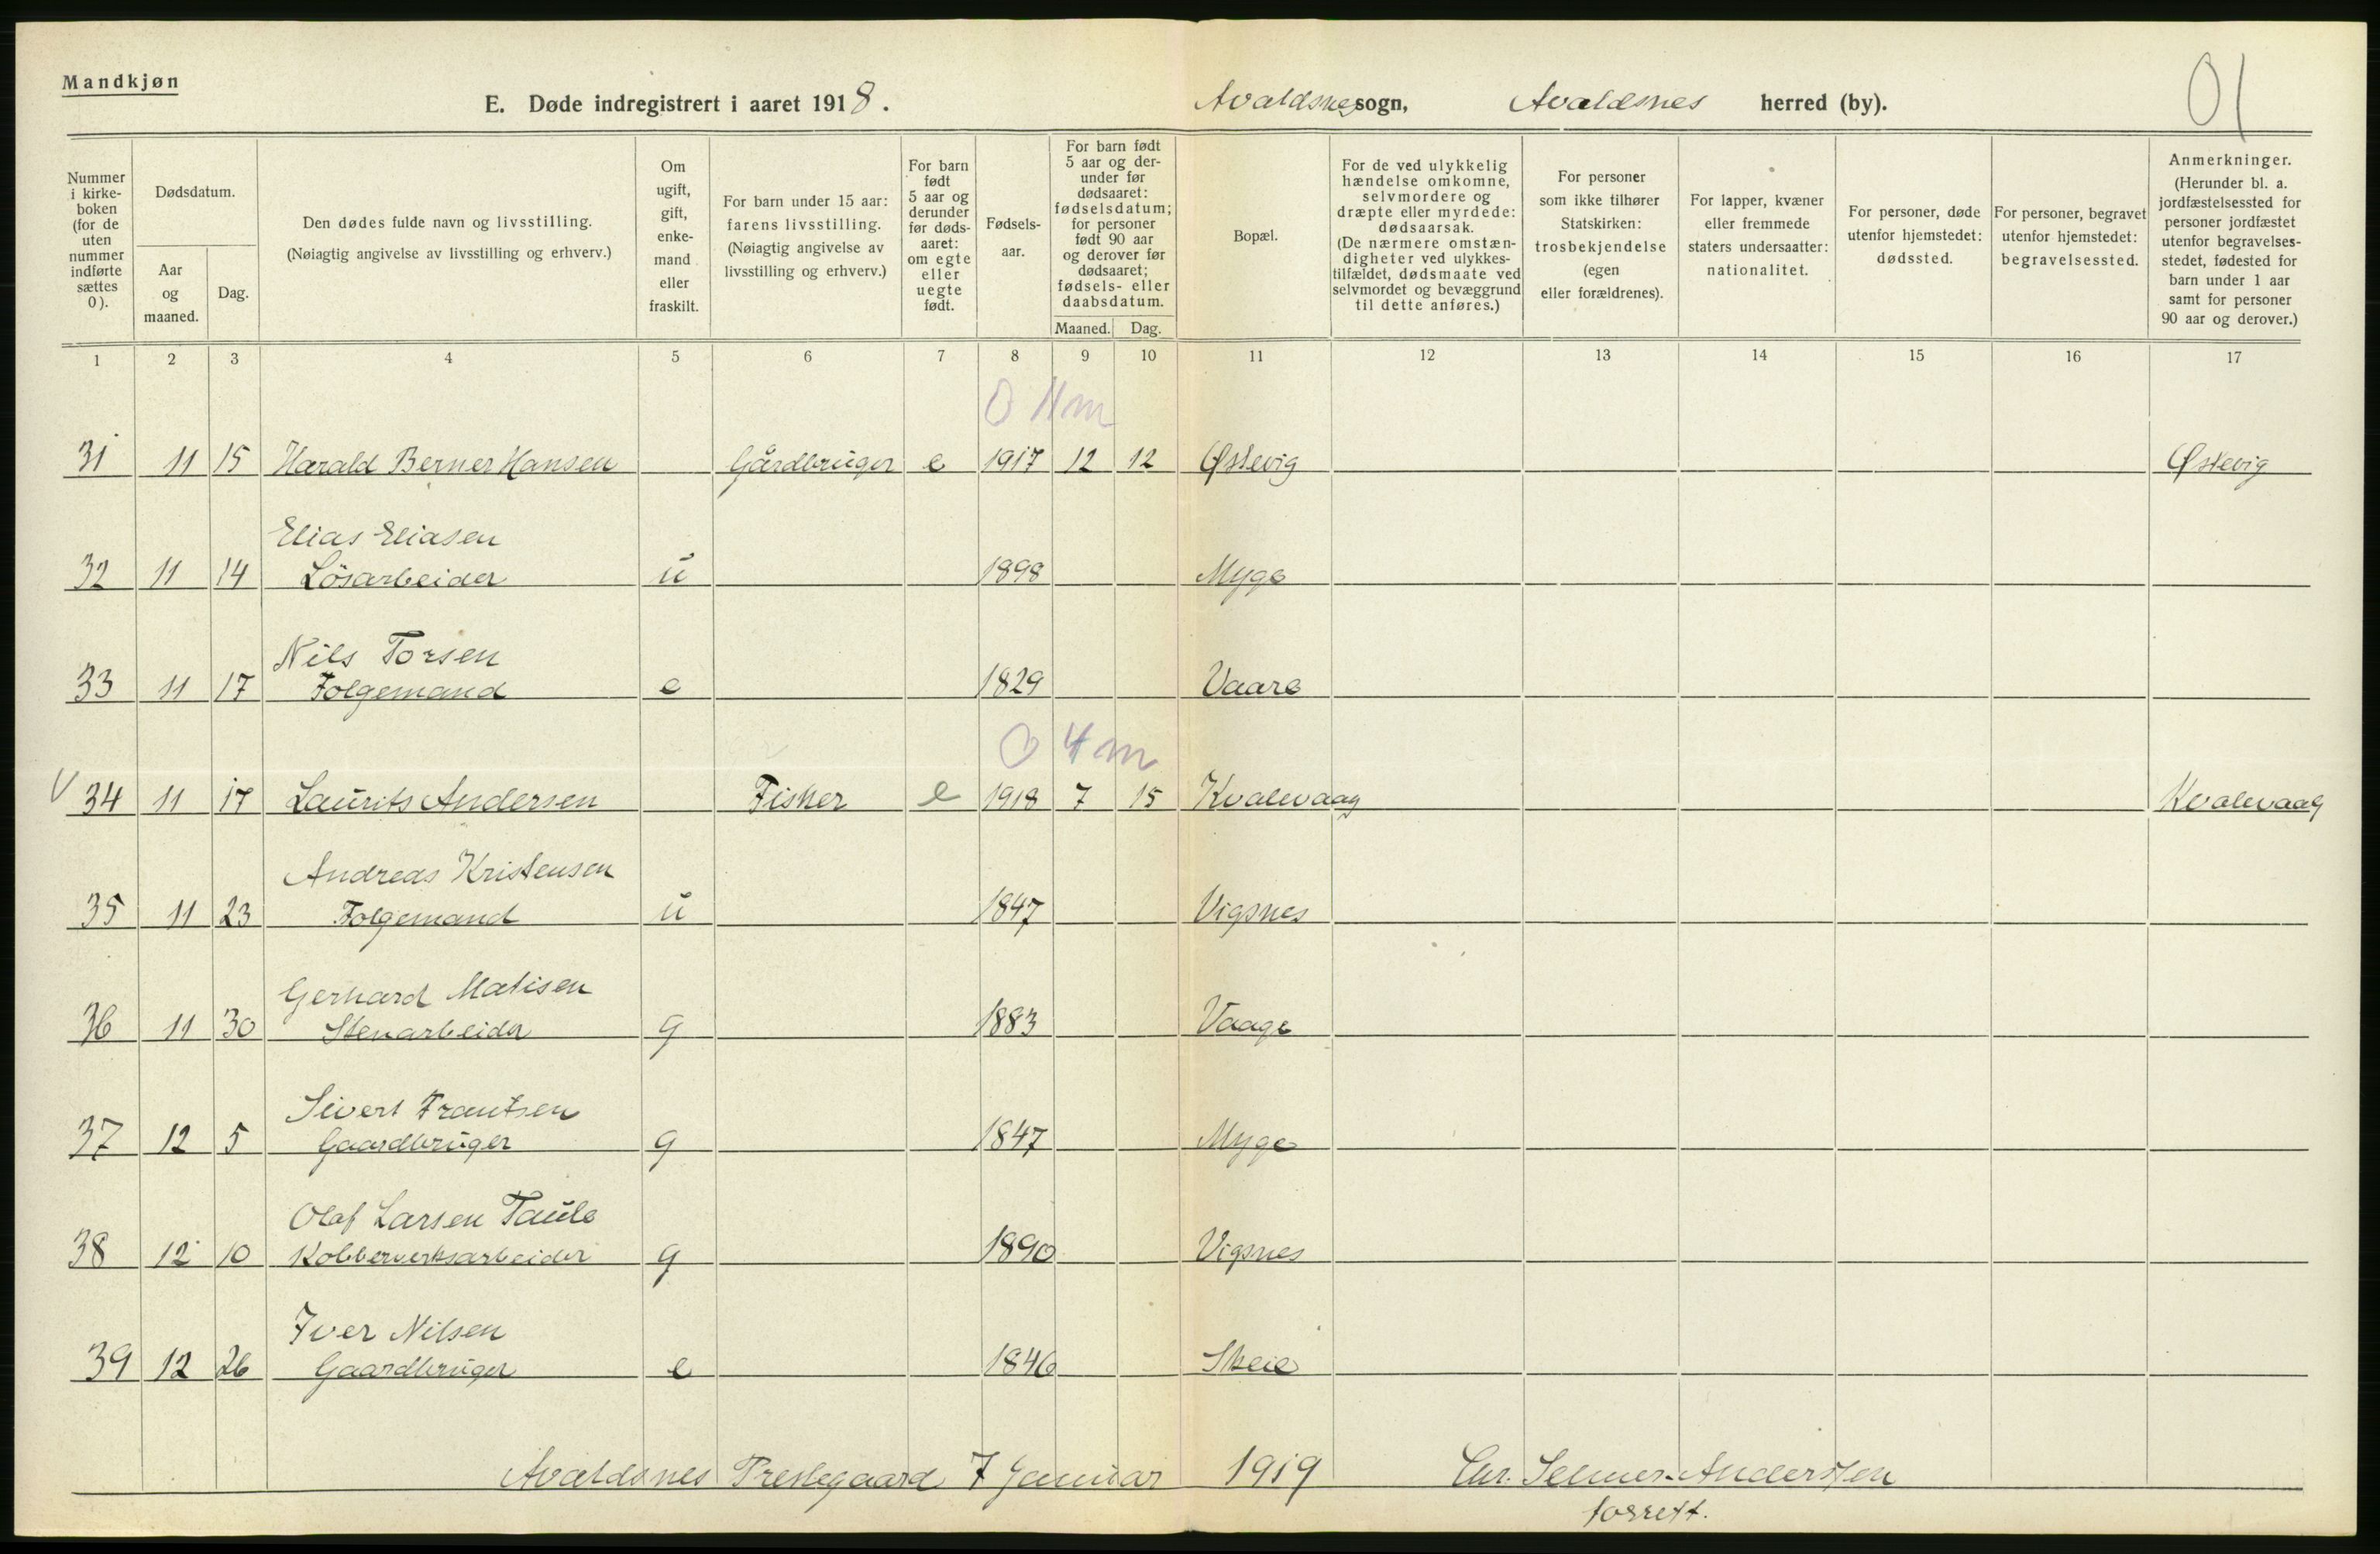 Mandkjøn
E. Døde indregistrert i aaret 1918. Avaldsnes sogn, Avaldsnes herred (by). 01
Nummer i kirke-boken (for de uten nummer indførte sættes 0).
Dødsdatum.
Aar og maaned.
Dag.
Den dødes fulde navn og livsstilling.
(Nøiagtig angivelse av livsstilling og erhverv.)
Om ugift, gift, enke-mand eller fraskilt.
For barn under 15 aar: farens livsstilling. (Nøiagtig angivelse av livsstilling og erhverv.)
For barn født 5 aar og derunder før døds-aaret: om egte eller uegte født.
Fødsels-aar.
For barn født 5 aar og der-under før dødsaaret: fødselsdatum; for personer født 90 aar og derover før dødsaaret; fødsels- eller daabsdatum.
Maaned. Dag.
Bopæl.
For de ved ulykkelig hændelse omkomne, selvmordere og dræpte eller myrdede: dødsaarsak. (De nærmere omstæn-digheter ved ulykkes-tilfældet, dødsmaate ved selvmordet og bevæggrund til dette anføres.)
For personer som ikke tilhører Statskirken: trosbekjendelse (egen eller forældrenes).
For lapper, kvæner eller fremmede staters undersaatter: nationalitet.
For personer, døde utenfor hjemstedet: dødssted.
For personer, begravet utenfor hjemstedet: begravelsessted.
Anmerkninger. (Herunder bl. a. jordfæstelsessted for personer jordfæstet utenfor begravelses-stedet, fødested for barn under 1 aar samt for personer 90 aar og derover.)
1 2 3 4 5 6 7 8 9 10 11 12 13 14 15 16 17
0 11 m
31 11 15 Harald Berner Hansen Gårdbruger e 1917 12 12 Østevig Østevig
Elias Eliasen
32 11 14 Lösarbeider u 1898 Myge
Nils Torsen
33 11 17 Folgemand e 1829 Vaare
0 4 m
V 34 11 17 Laurits Andersen Fisker e 1918 7 15 Kvalevaag Kvalevaag
Andreas Kristensen
35 11 23 Folgemand u 1847 Vigsnes
Gerhard Matisen
36 11 30 Stenarbeider g 1883 Vaage
Sivert Frantsen
37 12 5 Gaardbruger g 1847 Myge
Olaf Larsen Taule
38 12 10 Kobberverksarbeider g 1890 Vigsnes
Iver Nilsen
39 12 26 Gaardbruger e 1846 Skeie
Avaldsnes Prestegaard 7 Januar 1919 Chr. Selmer-Anderssen